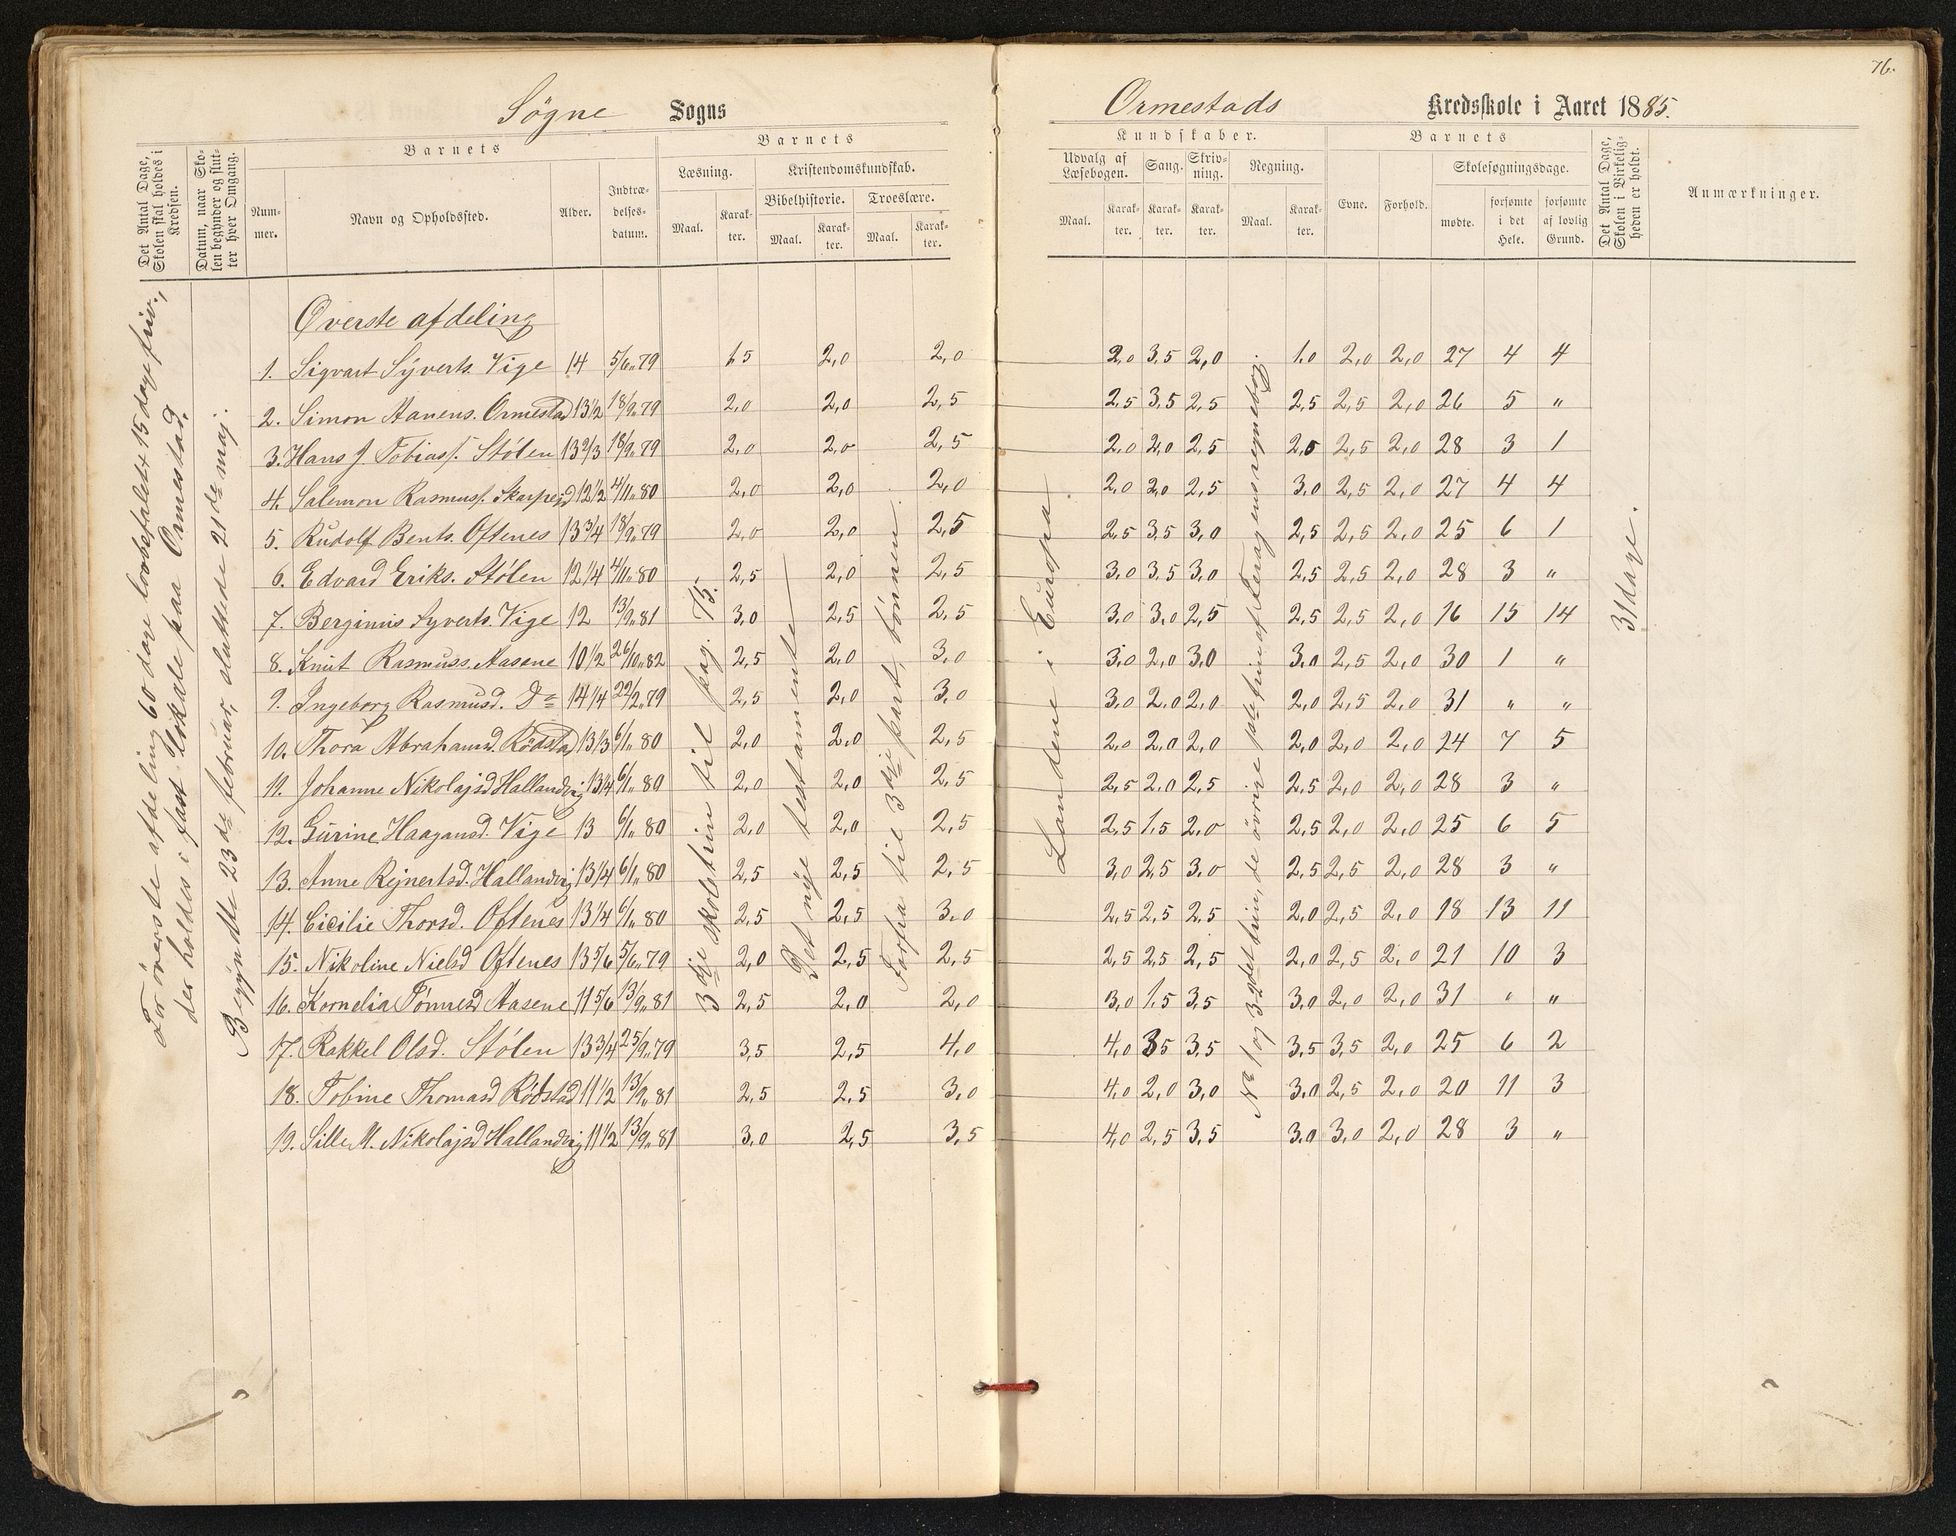 76.
Søgne Sogns
Ormestads Kredsskole i Aaret 1885.
Det Antal Dage, Skolen skal holdes i Kredsen.
Datum, naar Skolen begynder og slutter hver Omgang.
Barnets
Nummer.
Navn og Opholdssted.
Alder.
Indtrædelsesdatum.
Barnets
Læsning.
Maal.
Karakter.
Kristendomskundskab.
Bibelhistorie.
Maal.
Karakter.
Troeslære.
Maal.
Karakter.
Kundskaber.
Udvalg af Læsebogen.
Maal.
Karakter.
Sang.
Karakter.
Skrivning.
Karakter.
Regning.
Maal.
Karakter.
Barnets
Evne.
Forhold.
Skolesøgningsdage.
mødte.
forsømte i det Hele.
forsømte af lovlig Grund.
Det Antal Dage, Skolen i Virkeligheden er holdt.
Anmærkninger.
For överste afdeling 60 dage lovbefalet 15 dage friv.,
der holdes i fast Lokale paa Ormestad.
Begyndte 23de februar, sluttede 21de maj.
Överste afdeling
1. Sigvart Syverts. Vige 14 5/6 „ 79 1,5 2,0 2,0 2,0 3,5 2,0 1,0 2,0 2,0 27 4 4
2. Simon Aanens. Ormestad 13 1/2 18/9 „ 79 2,0 2,0 2,5 2,5 3,5 2,5 2,5 2,5 2,0 26 5 „
3. Hans J. Tobiass. Stølen 13 2/3 18/9 „ 79 2,0 2,0 2,5 2,0 2,0 2,5 2,5 2,5 2,0 28 3 1
4. Salemon Rasmuss. Skarpeid 12 1/2 4/11 „ 80 2,0 2,0 2,0 2,0 2,0 2,5 3,0 2,5 2,0 27 4 4
5. Rudolf Bents. Oftenes 13 3/4 18/9 „ 79 2,0 2,0 2,5 2,5 3,5 3,0 2,5 2,5 2,0 25 6 1
6. Edvard Eriks. Stølen 12 1/4 4/11 „ 80 2,5 2,0 2,5 3,0 3,5 3,0 2,5 2,5 2,0 28 3 „
7. Berginius Syverts. Vige 12 13/9 „ 81 3,0 2,5 2,5 3,0 3,0 2,5 2,5 2,5 2,0 16 15 14
8. Knut Rasmuss. Aasene 10 1/2 26/10 „ 82 2,5 2,0 3,0 3,0 2,0 3,0 3,0 2,5 2,0 30 1 „
9. Ingeborg Rasmusd. Do 14 1/4 22/2 „ 79 2,5 2,0 3,0 3,0 2,0 2,0 2,0 2,5 2,0 31 „ „
10. Thora Abrahamsd. Rødstad 13 1/3 6/1 „ 80 2,0 2,0 2,5 2,0 2,0 2,0 2,0 2,0 2,0 24 7 5
11. Johanne Nikolajsd Hallandvig 13 1/4 6/1 „ 80 2,0 2,0 2,5 2,5 2,0 2,5 2,5 2,0 2,0 28 3 „
12. Gurine Haagansd. Vige 13 6/1 „ 80 2,0 2,0 2,5 2,5 1,5 2,0 2,5 2,0 2,0 25 6 5
13. Anne Rejnertsd. Hallandvig 13 1/4 6/1 „ 80 2,5 2,5 2,5 3,0 2,5 3,0 2,5 2,5 2,0 28 3 „
14. Cicilie Thorsd. Oftenes 13 1/4 6/1 „ 80 2,5 2,5 3,0 2,5 2,5 2,5 2,0 2,5 2,0 18 13 11
15. Nikoline Nielsd Oftenes 13 5/6 5/6 „ 79 2,0 2,5 2,5 2,5 2,5 2,5 2,0 2,5 2,0 21 10 3
16. Kornelia Tønnesd Aasene 11 5/6 13/9 „ 81 2,5 2,0 2,0 3,0 1,5 3,5 3,0 2,0 2,0 31 „ „
17. Rakkel Olsd. Stølen 13 3/4 25/9 „ 79 3,5 2,5 4,0 4,0 3,5 3,5 3,5 3,5 2,0 25 6 2
18. Tobine Thomasd Rødstad 11 1/2 13/9 „ 81 2,5 2,5 3,0 4,0 2,0 3,0 3,0 2,5 2,0 20 11 3
19. Sille M. Nikolajsd Hallandvig 11 1/2 13/9 „ 81 3,0 2,5 3,5 4,0 2,5 3,5 3,0 3,0 2,0 28 3 „
3dje skoletrin til pag. 75.
Det nye testamente
Forfra til 3dje part, bønnen.
Landene i Europa.
No 1 og 3 2det trin, de øvrige 1ste trin af Feragens regnebog.
31 dage.